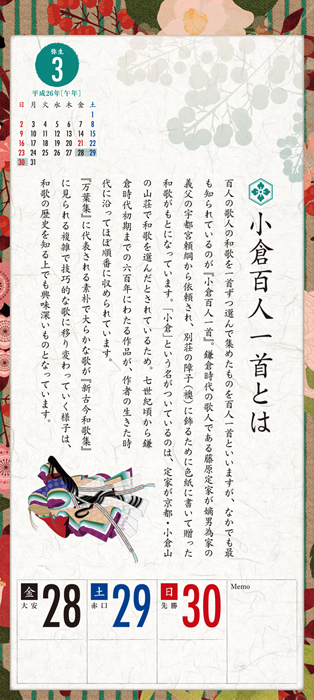 弥生
3
平成26年[午年]
日 月 火 水 木 金 土
1
2 3 4 5 6 7 8
9 10 11 12 13 14 15
16 17 18 19 20 21 22
23 24 25 26 27 28 29
30 31
小倉百人一首とは
百人の歌人の和歌を一首ずつ選んで集めたものを百人一首といいますが、なかでも最
も知られているのが『小倉百人一首』。鎌倉時代の歌人である藤原定家が嫡男為家の
義父の宇都宮頼綱から依頼され、別荘の障子(襖)に飾るために色紙に書いて贈った
和歌がもとになっています。「小倉」という名がついているのは、定家が京都・小倉山
の山荘で和歌を選んだとされているため。七世紀頃から鎌
倉時代初期までの六百年にわたる作品が、作者の生きた時
代に沿ってほぼ順番に収められています。
『万葉集』に代表される素朴で大らかな歌が『新古今和歌集』
に見られる複雑で技巧的な歌に移り変わっていく様子は、
和歌の歴史を知る上でも興味深いものとなっています。
金
大安
28
土
赤口
29
日
先勝
30
Memo